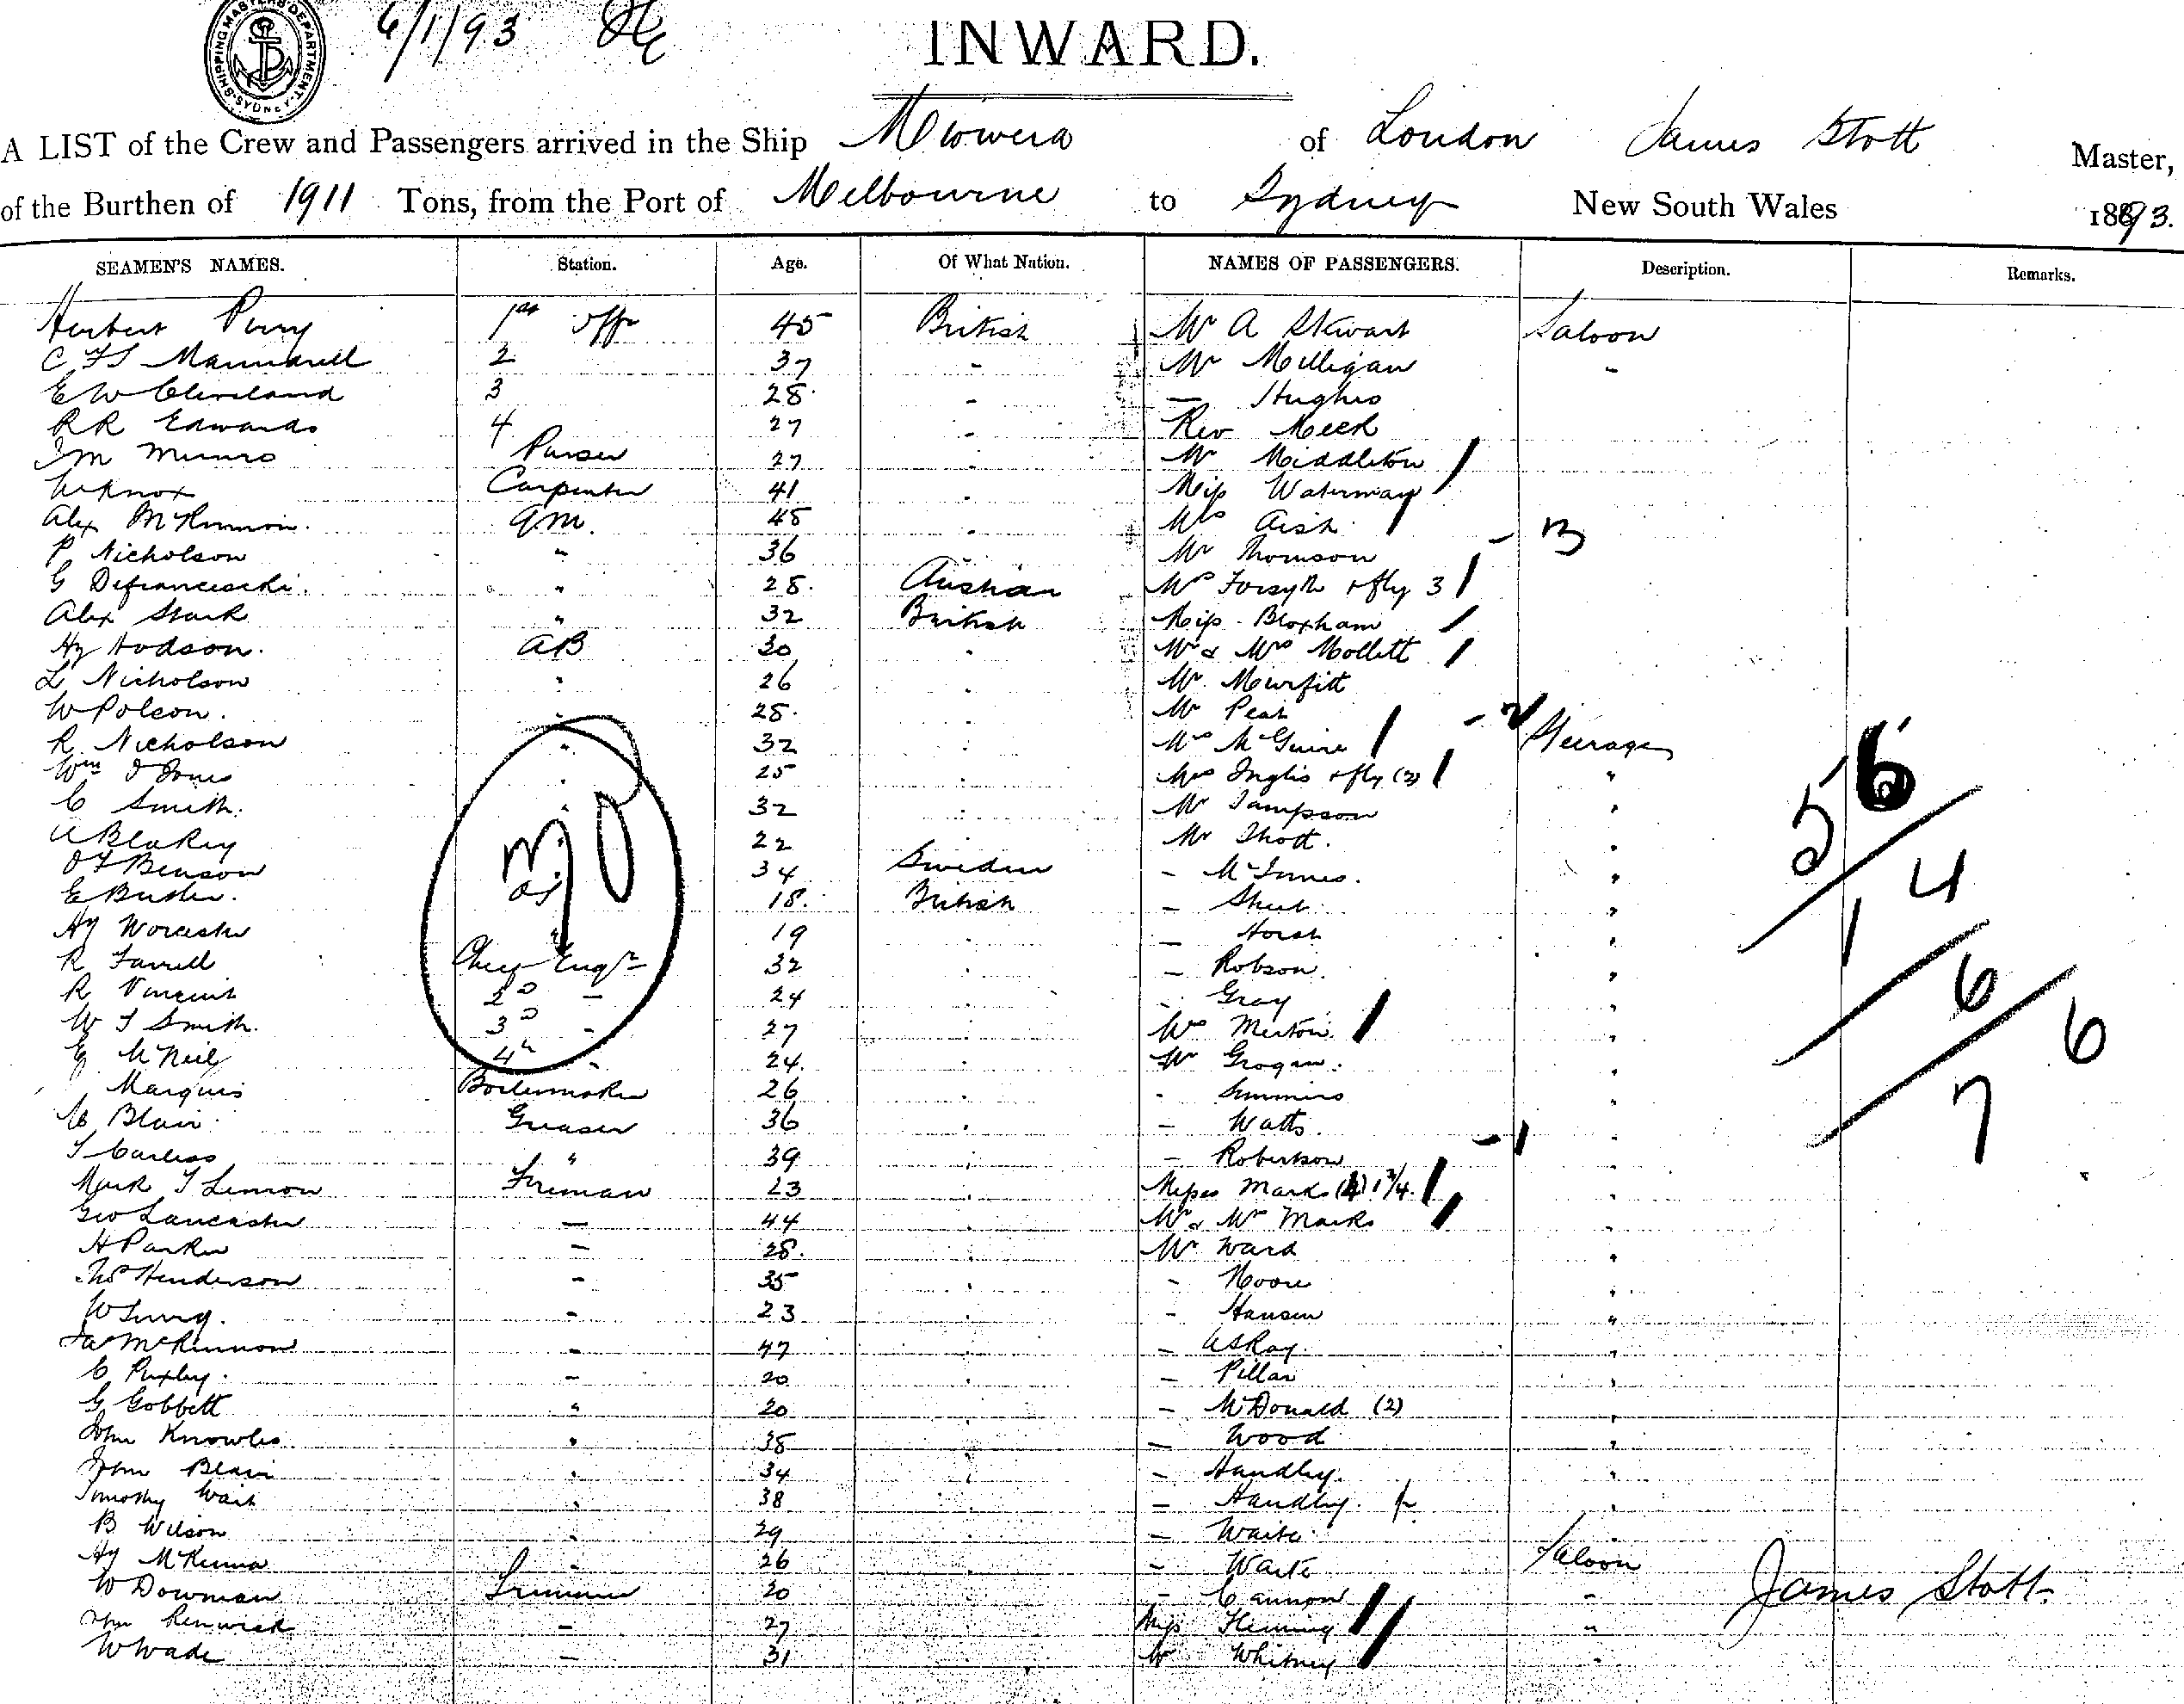 SHIPPING MASTERS DEPARTMENT SYDNEY
6/1/93
INWARD.
A LIST of the Crew and Passengers arrived in the Ship Miowera of London James Stott Master,
of the Burthen of 1911 Tons, from the Port of Melbourne to Sydney New South Wales 1893.
SEAMEN'S NAMES. Station. Age. Of What Nation. NAMES OF PASSENGERS. Description. Remarks.
Herbert Perry 1st offr 45 British Mr A Stewart Saloon
C F S Maundrell 2 37 - Mr Milligan -
E W Cleveland 3 28 - — Hughes
R R Edwards 4 27 - Rev Meek
Munro Purser 27 Mr Middleton
Knox Carpenter 41 Miss Waterman
Alex McKinnon. Q.M. 45 Mrs Aish - 13
P Nicholson " 36 Mr Thomson
G Defranceschi. " 28. Austrian Mrs Forsyth & fly 3
Alex Stark " 32 British Miss Bloxham
Hy Hodson. AB 30 Mr & Mrs Mollett
L Nicholson 26 Mr Murfitt
W Polson. 28. Mr Peat - 2
R Nicholson " 32 Mrs McGuire Steerage
Wm J Jones 25 Mrs Inglis & fly (2) "
C Smith. 32 Mr Sampson 56
A Blakey 22 Mr Thott.
O F Benson 34 Sweden - McInnes. 14
E Butler. OS 18. British - Street
Hy Worcester " 19 — Horsh
R Farrell Chief Engr 32 - Robson.
R Vincent 2d - 24 - Gray 6
W J Smith. 3d - 27 Mrs Merton 6
E McNeil 4th 24. Mr Grogan.
Marquis Boilermaker 26 - Simmins 7
C Blair Greaser 36 - Watts.
T Carless " 39 - Robertson - 1
Mark T Lemon Fireman 23 Misses Marks (4)
Geo Lancaster — 44 Mr & Mrs Marks
H Parker — 28. Mr Ward
Thos Henderson - 35 - Moore
W - 23 - Hansen
McKinnon - 47 - Askay.
C Puxley. - 20 - Pillar
G Gobbett " 20 - McDonald (2)
John Knowles 38 — Wood
John Blair 34 - Handley.
Timothy Wait 38 — Handley.
B Wilson 29 - Waite
Hy McKenna 26 - Waite Saloon
W Dowman Trimmer 20 - Cannon - James Stott.
John Renwick - 27 Miss Fleming "
W Wade — 31 Mr Whitney